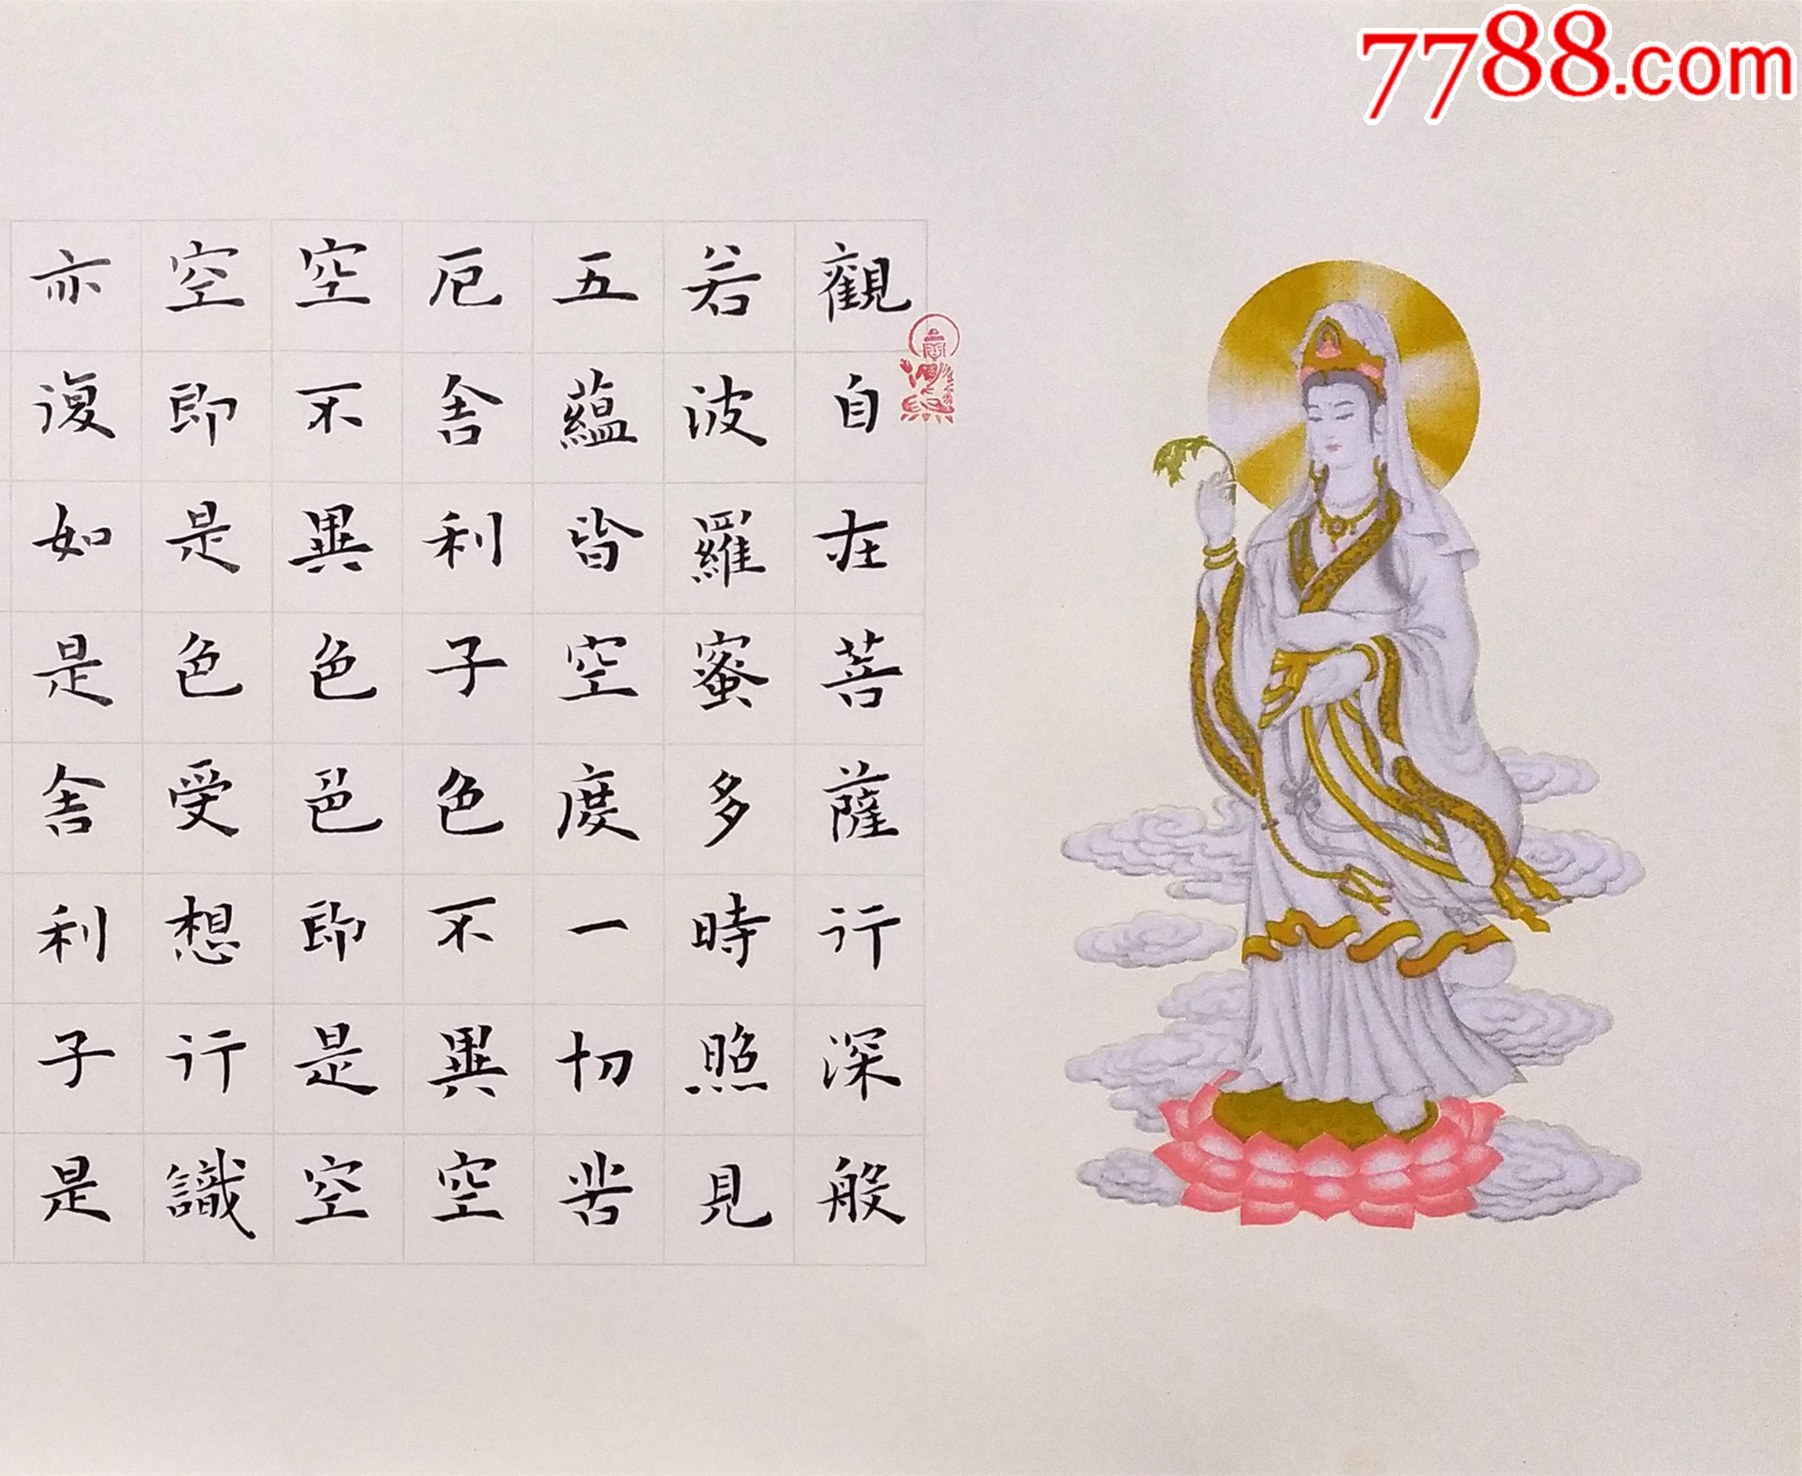 7788.com
觀自在菩薩行深般
若波羅蜜多時照見
五蘊皆空度一切苦
厄舍利子色不異空
空不異色色即是空
空即是色受想行識
亦復如是舍利子是